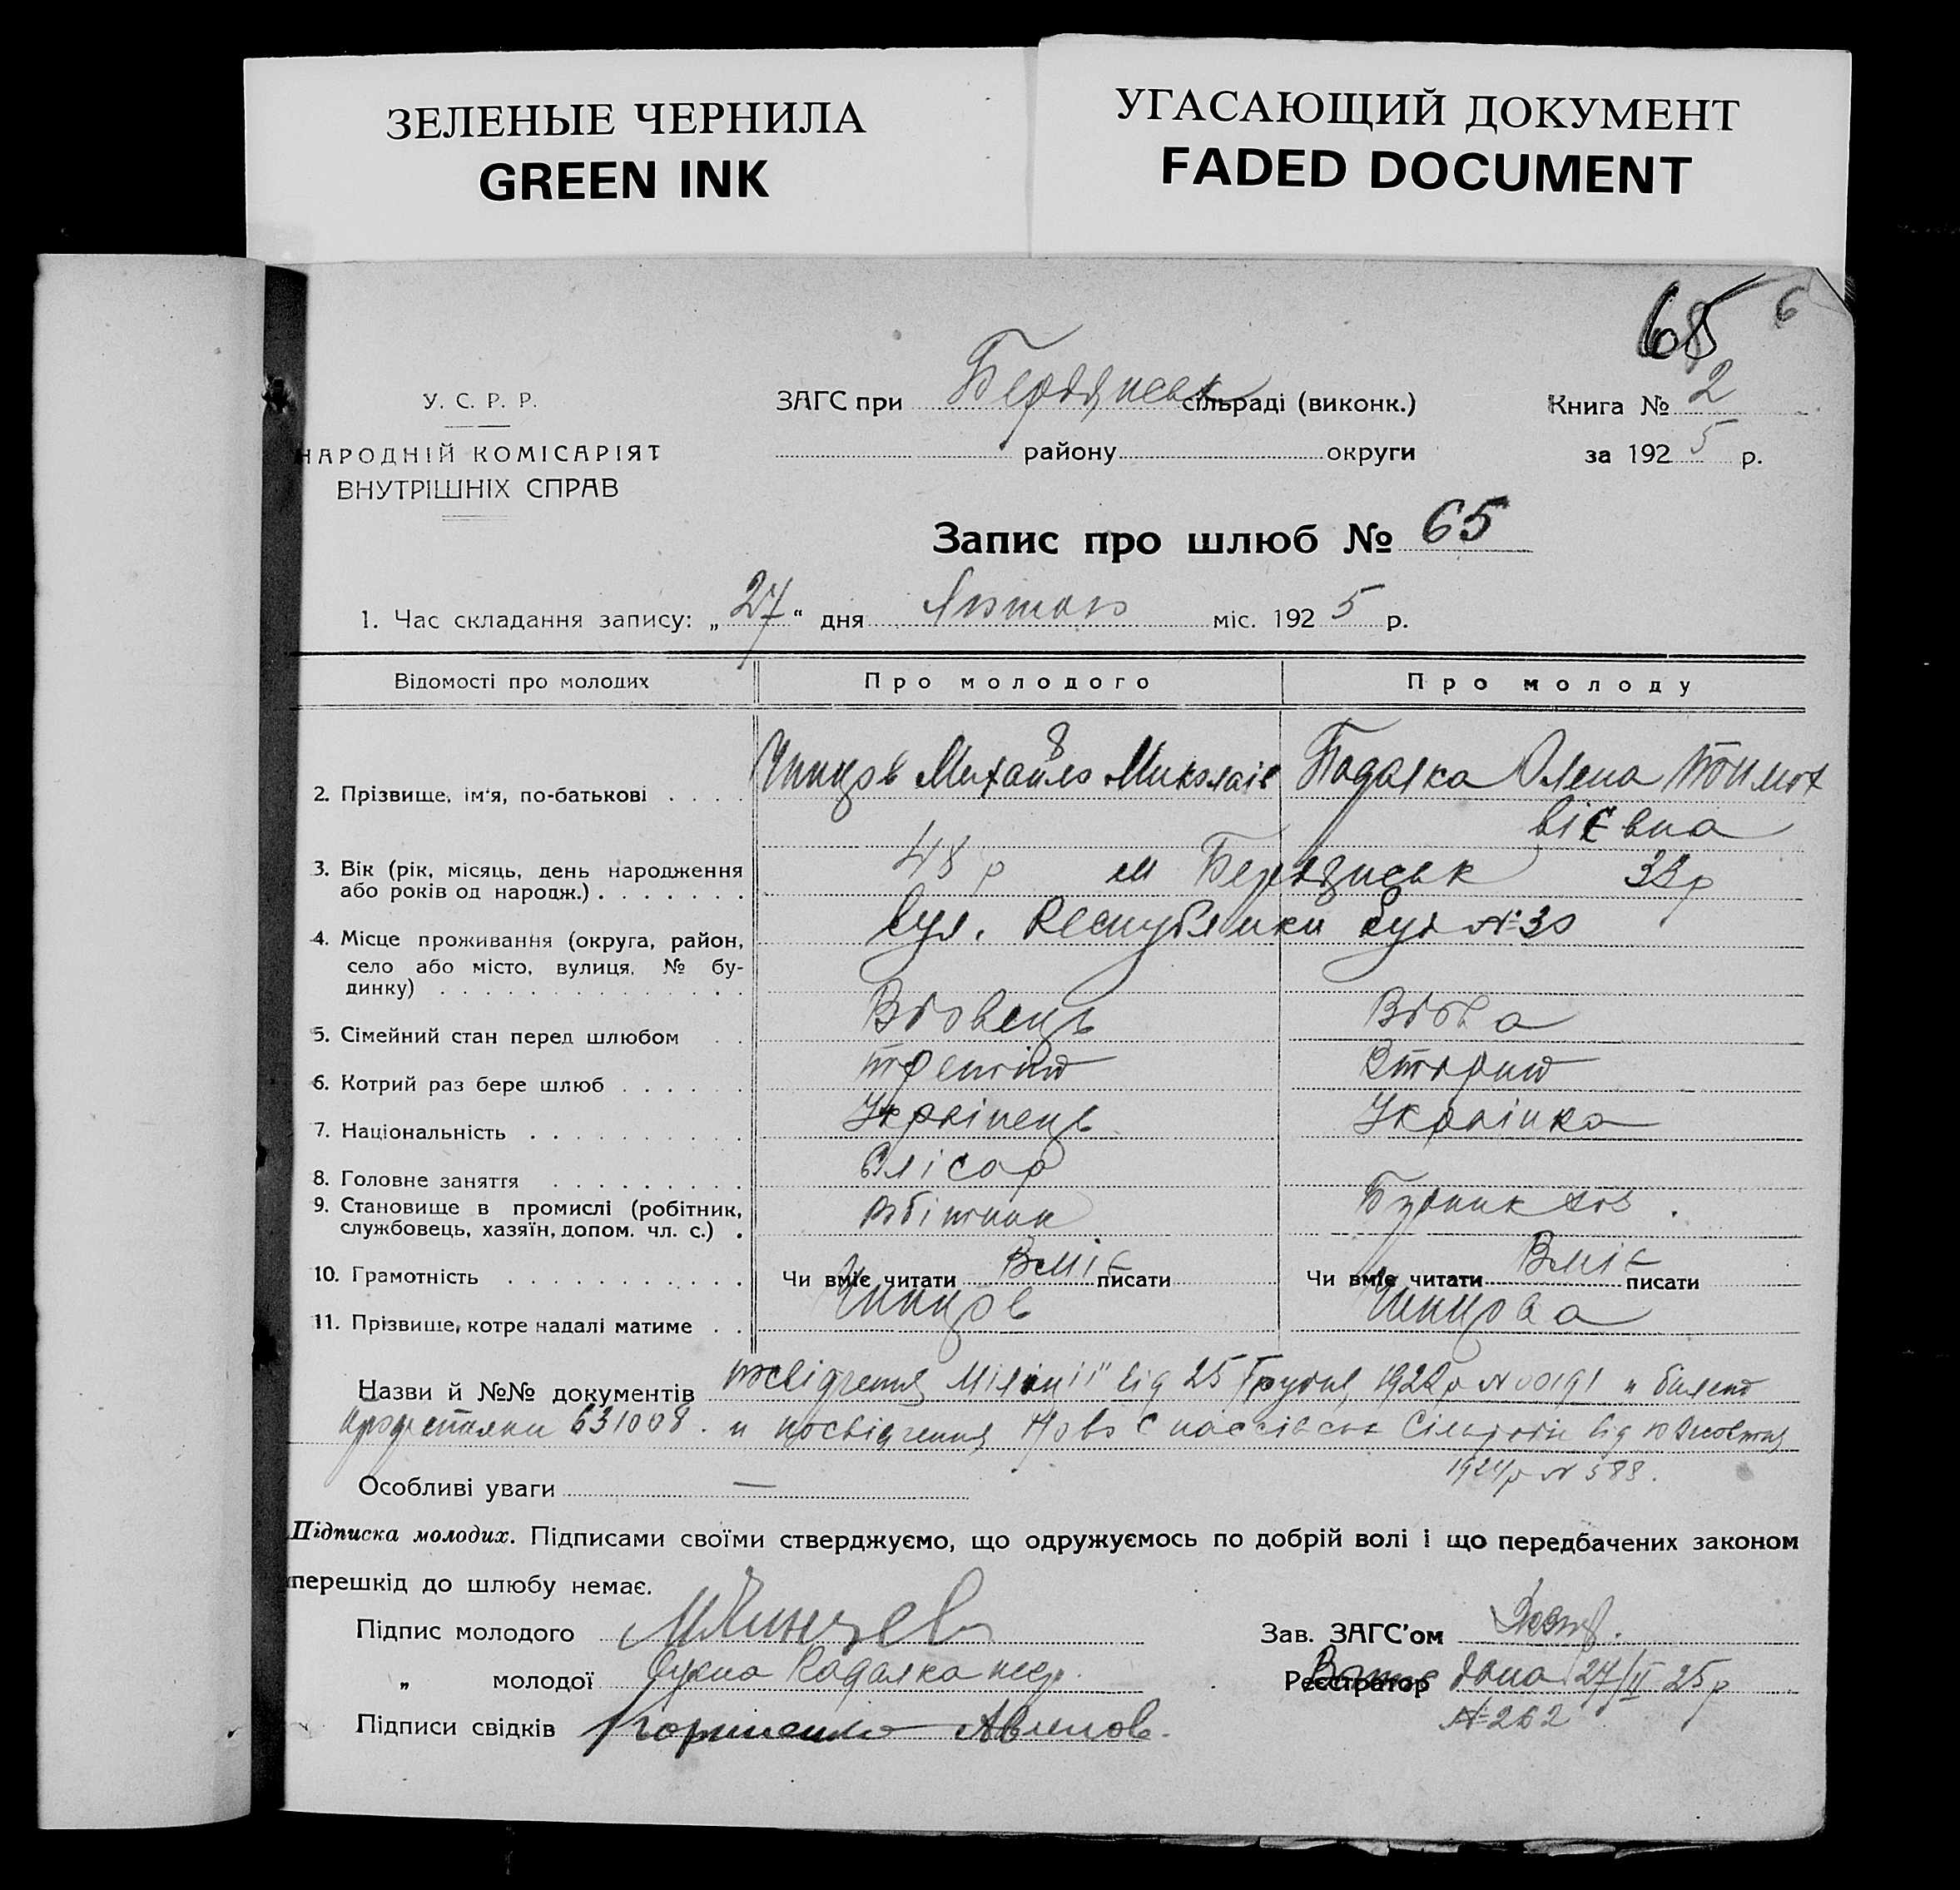 ЗЕЛЕНЫЕ ЧЕРНИЛА
GREEN INK
УГАСАЮЩИЙ ДОКУМЕНТ
FADED DOCUMENT
65 6
У. С. Р. Р.
НАРОДНІЙ КОМІСАРІЯТ
ВНУТРІШНІХ СПРАВ
ЗАГС при Бердянськ сільраді (виконк.)
району округи
Книга № 2
за 192 5 р.
Запис про шлюб № 65
1. Час складання запису: „ 27 “ дня Лютого міс. 192 5 р.
Відомості про молодих Про молодого Про молоду
2. Прізвище, ім'я, по-батькові Михайло Миколаїв Олена Тимох
вієвна
3. Вік (рік, місяць, день народження 48 р м Бердянськ р
або років од народж.)
4. Місце проживання (округа, район, вул. Республіки буд № 30
село або місто, вулиця, № бу-
динку)
5. Сімейний стан перед шлюбом Вдовець Вдова
6. Котрий раз бере шлюб
7. Національність Українець Українка
8. Головне заняття Слісар
9. Становище в промислі (робітник, робітник
службовець, хазяїн, допом. чл. с.)
10. Грамотність Чи вміє читати Вміє писати Чи вміє читати Вміє писати
11. Прізвище, котре надалі матиме
Назви й №№ документів посвідчення Міліції від 25 Грудня 1922 р № 00191
631008 . и посвідчення від 10 Жовтня
1924 р № 588.
Особливі уваги —
Підписка молодих. Підписами своїми стверджуємо, що одружуємось по добрій волі і що передбачених законом
перешкід до шлюбу немає.
Підпис молодого
Зав. ЗАГС'ом
„ молодої
Реєстратор дана 27/II 25 р
№ 262
Підписи свідків